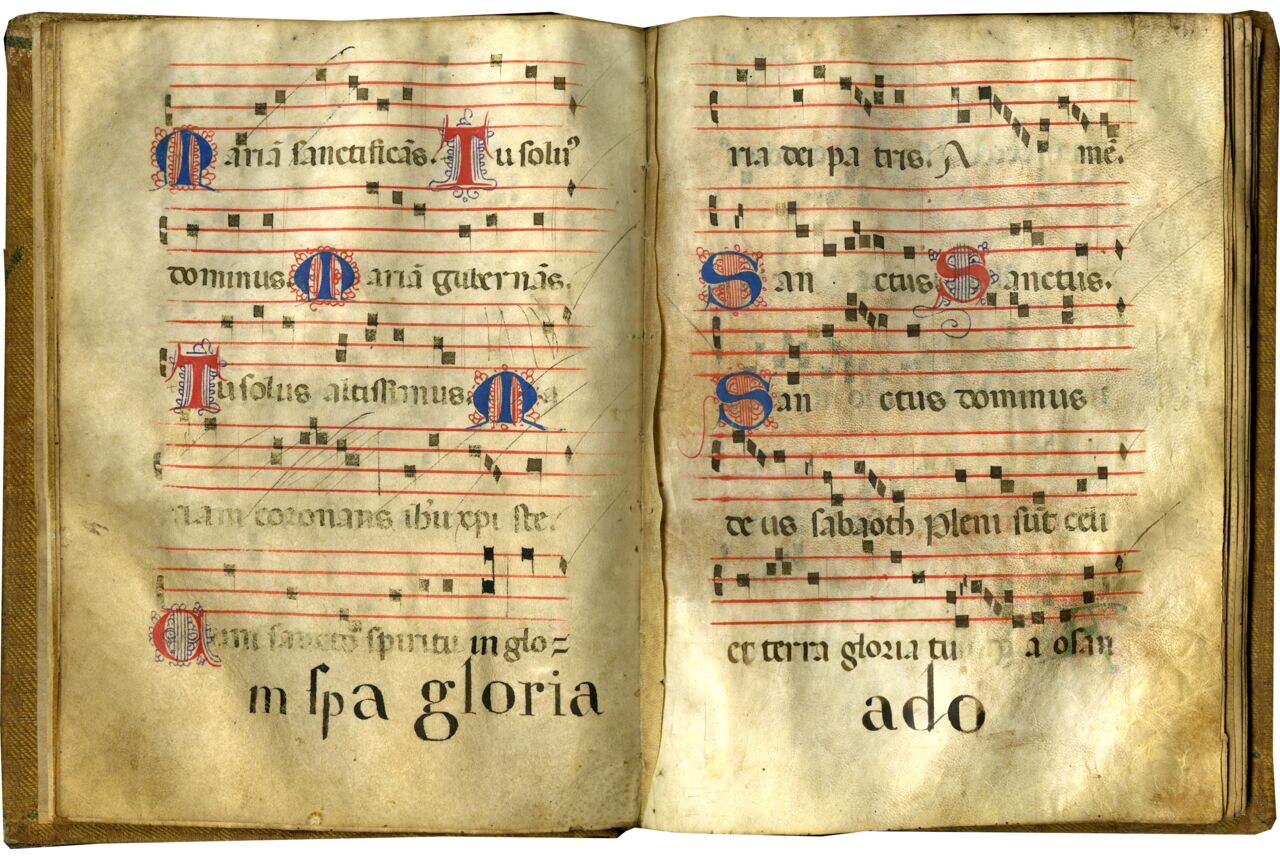 Mariā sanctificās. Tu solus
dominus. Mariā gubernās.
Tu solus altissimus. Ma
riam coronans ihū xpi ste.
Cum sancto spiritu in glo
m spa gloria
ria dei pa tris. A mē.
San ctus. Sanctus.
San ctus dominus
de us sabaoth Pleni sūt celi
et terra gloria tu a osan
ado